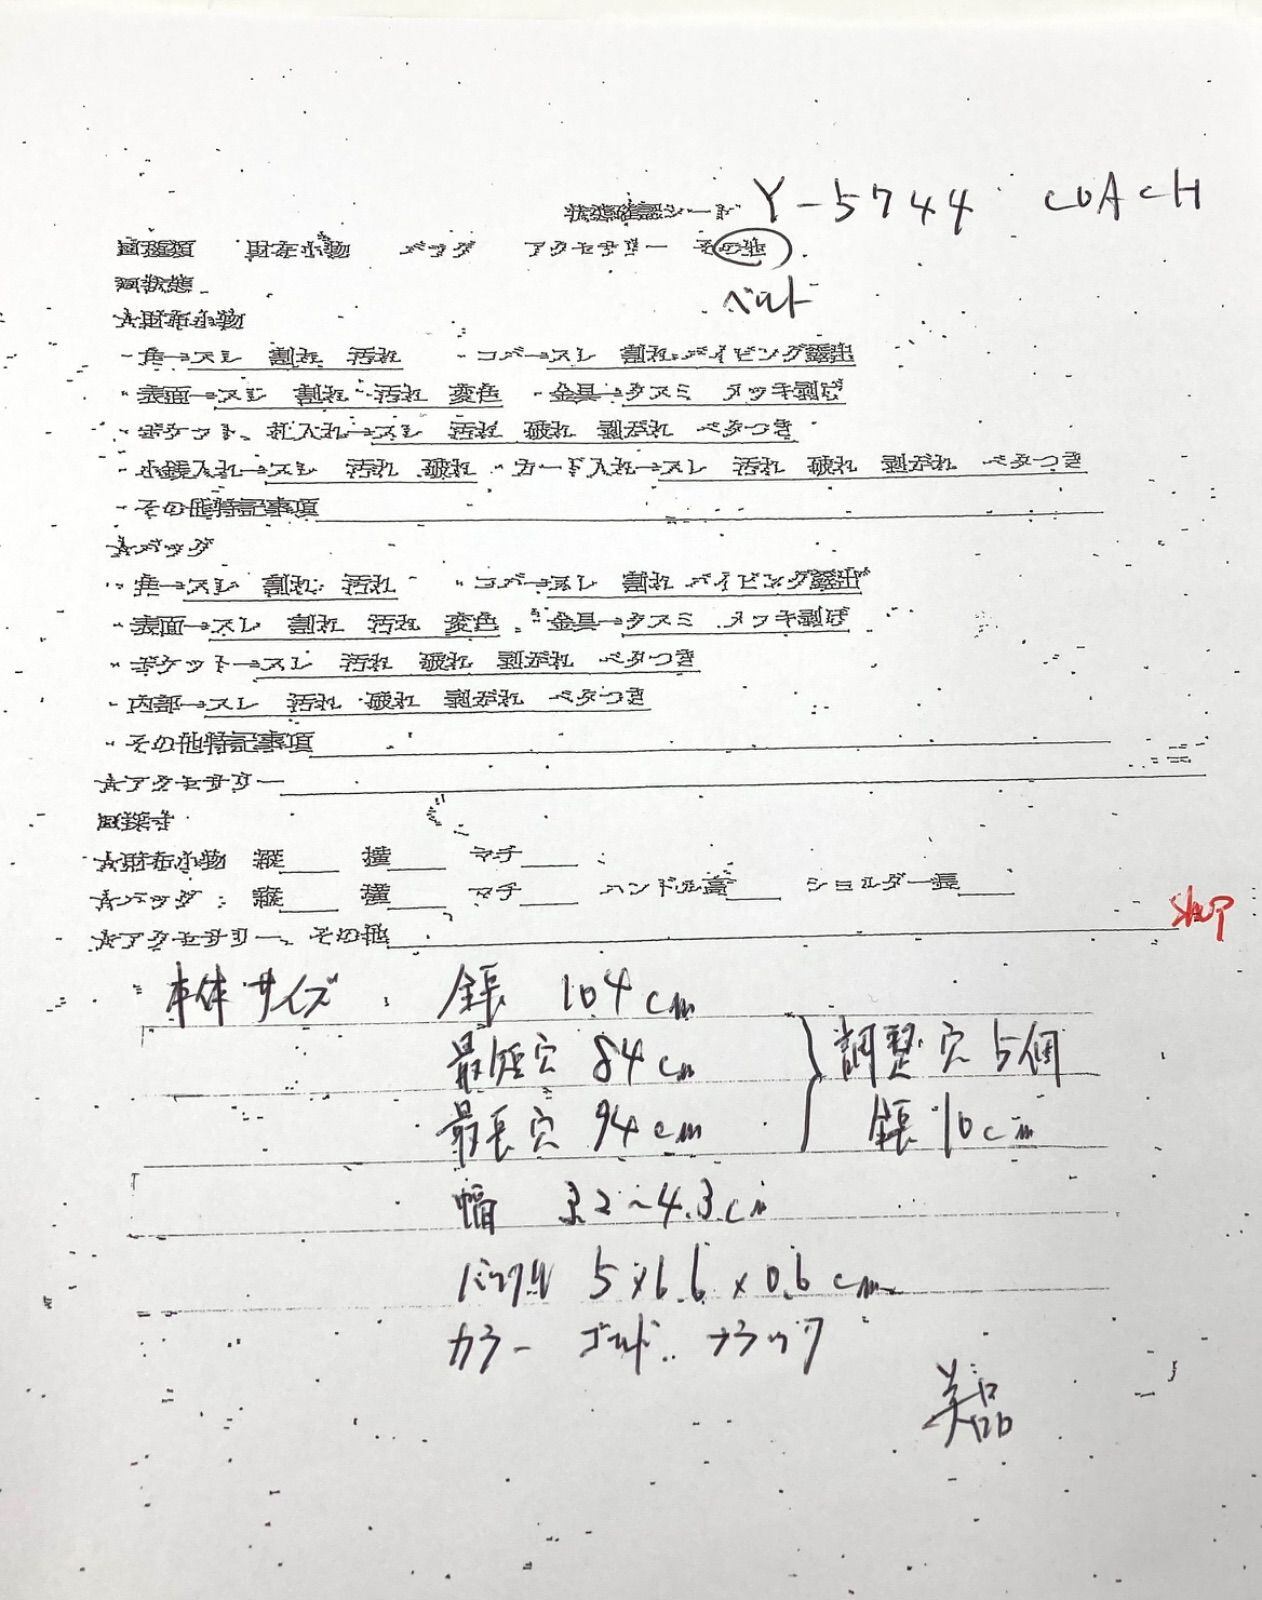 状態確認シート Y-5744 COACH
□種類 財布小物 バッグ アクセサリー その他
□状態 ベルト
☆財布小物
・角→スレ 割れ 汚れ ・コバ→スレ 割れ パイピング露出
・表面→スレ 割れ 汚れ 変色 ・金具→クスミ メッキ剥げ
・ポケット、札入れ→スレ 汚れ 破れ 剥がれ ベタつき
・小銭入れ→スレ 汚れ 破れ ・カード入れ→スレ 汚れ 破れ 剥がれ ベタつき
・その他特記事項
☆バッグ
・角→スレ 割れ 汚れ ・コバ→スレ 割れ パイピング露出
・表面→スレ 割れ 汚れ 変色 ・金具→クスミ メッキ剥げ
・ポケット→スレ 汚れ 破れ 剥がれ ベタつき
・内部→スレ 汚れ 破れ 剥がれ ベタつき
・その他特記事項
☆アクセサリー
□採寸
☆財布小物 縦 横 マチ
☆バッグ 縦 横 マチ ハンドル高 ショルダー長
☆アクセサリー、その他
本体サイズ 全長 104cm
最短穴 84cm 調整穴 5個
最長穴 94cm 全長 10cm
幅 3.2~4.3cm
バックル 5×6.6×0.6cm
カラー ゴールド ブラック
美品